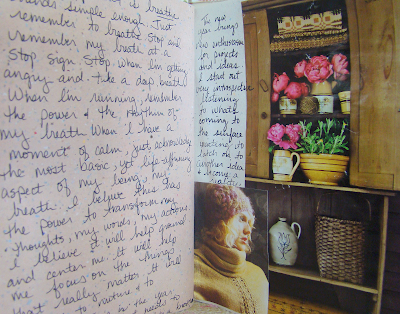 sounds simple enough. Just
remember to breathe. Stop and
remember my breath at a
stop sign. Stop when I'm getting
angry and take a deep breath.
When I'm running, remember
the power & the rhythm of
my breath. When I have a
moment of calm, just acknowledge
the most basic, yet life-affirming
aspect of my being, my
breath. I believe this has
the power to transform my
thoughts, my words, my actions.
I believe it will help ground
and center me. It will help
me focus on the things
that really matter. It will
to nurture & to
in the year.
needs to
The new
year brings
enthusiasm
for projects
and ideas.
I start out
very introspective
listening
to what's
coming to
the surface
waiting to
latch on to
another idea
& become a
reality